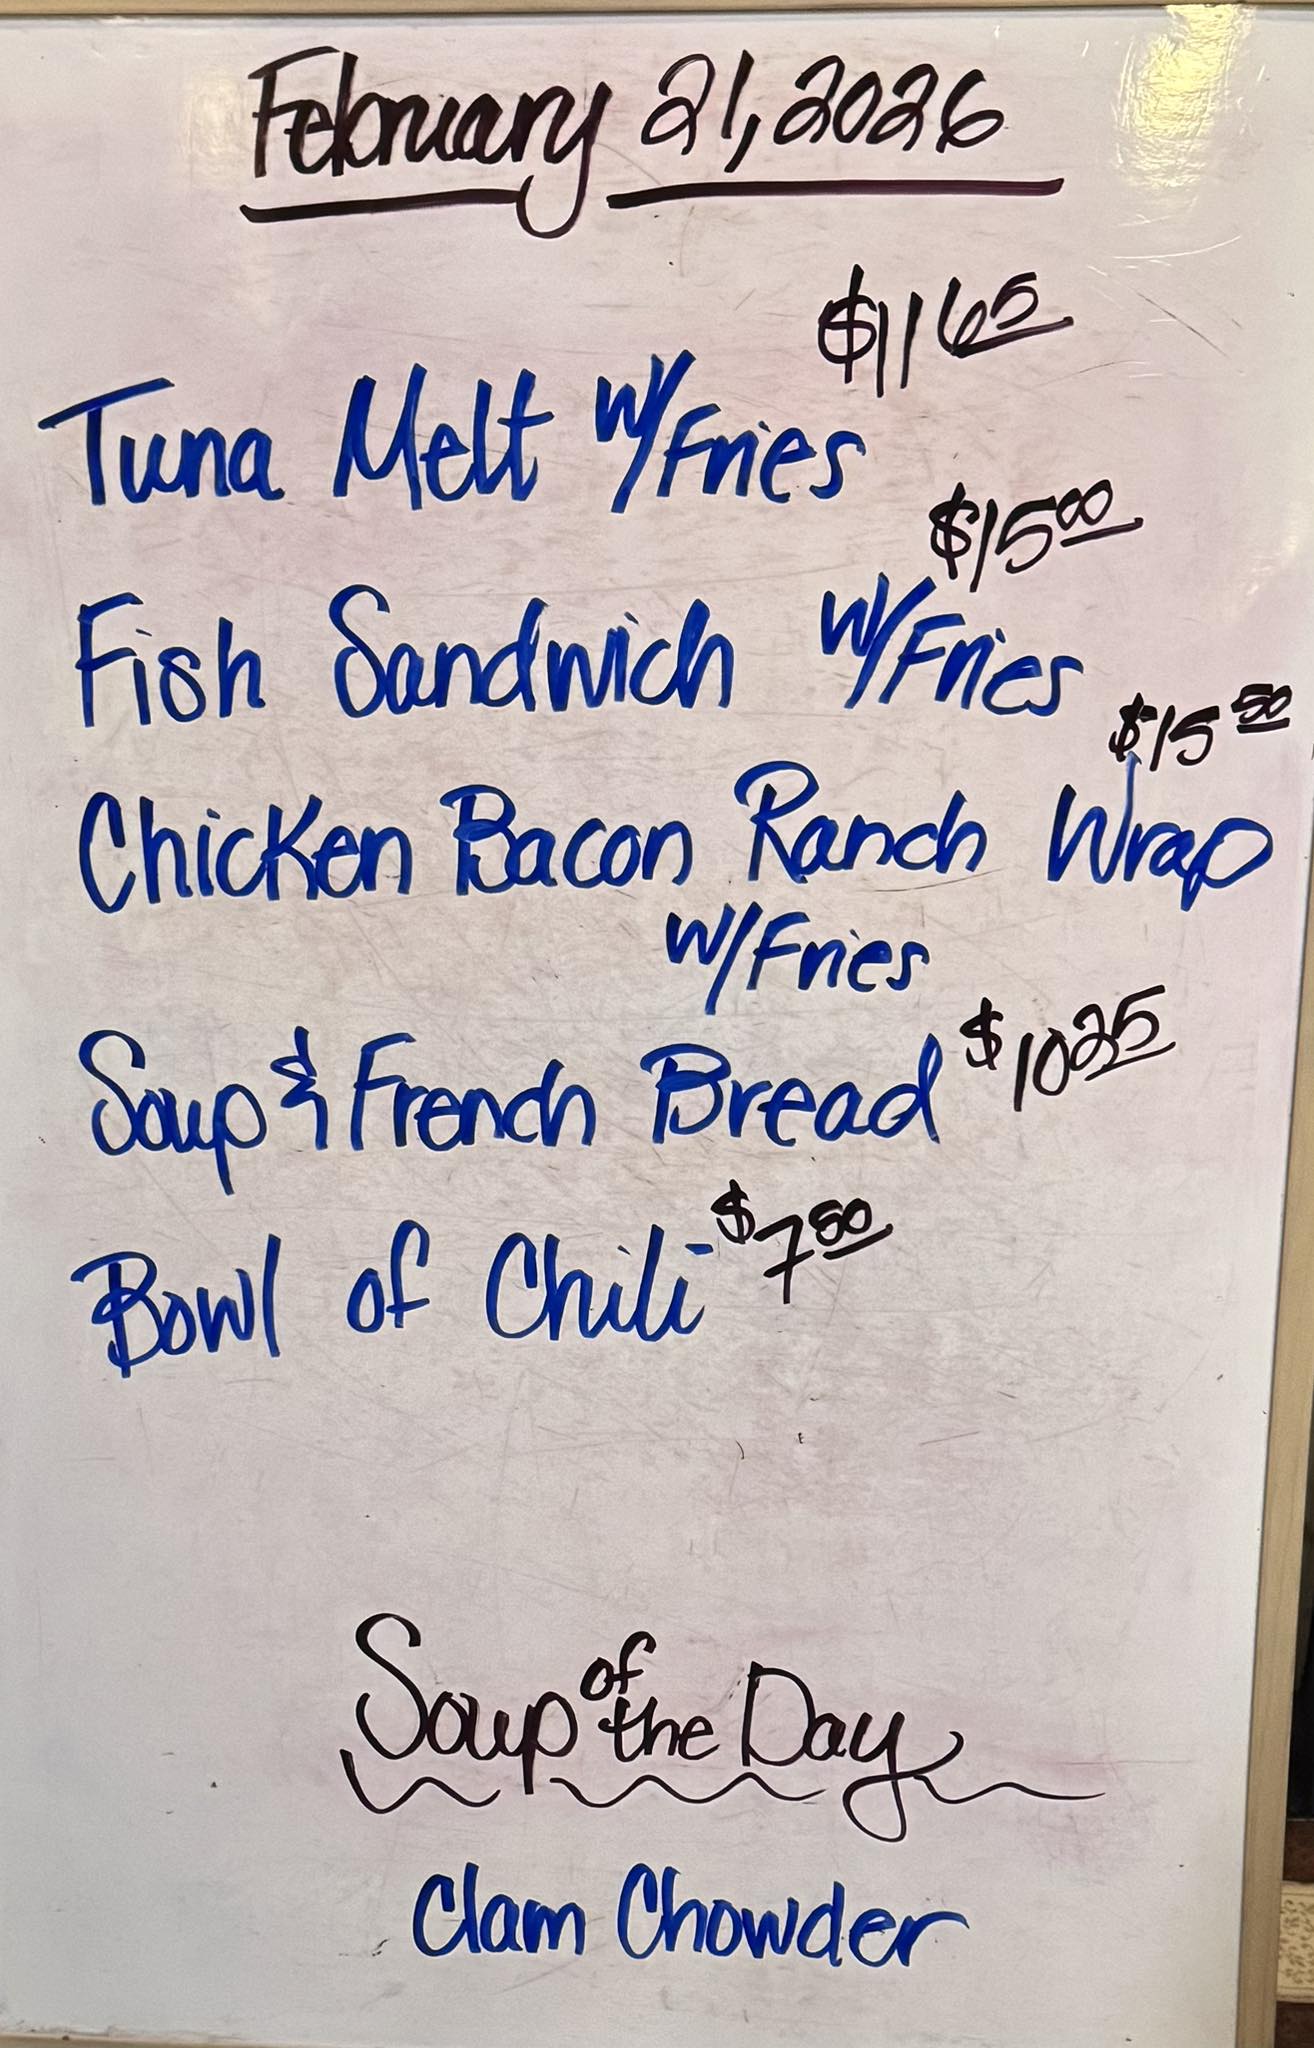 February 21, 2026
$11 65
Tuna Melt w/Fries
$15 00
Fish Sandwich w/Fries
$15 50
Chicken Bacon Ranch Wrap
w/Fries
Soup & French Bread $10 25
Bowl of Chili $7 50
Soup of the Day
Clam Chowder